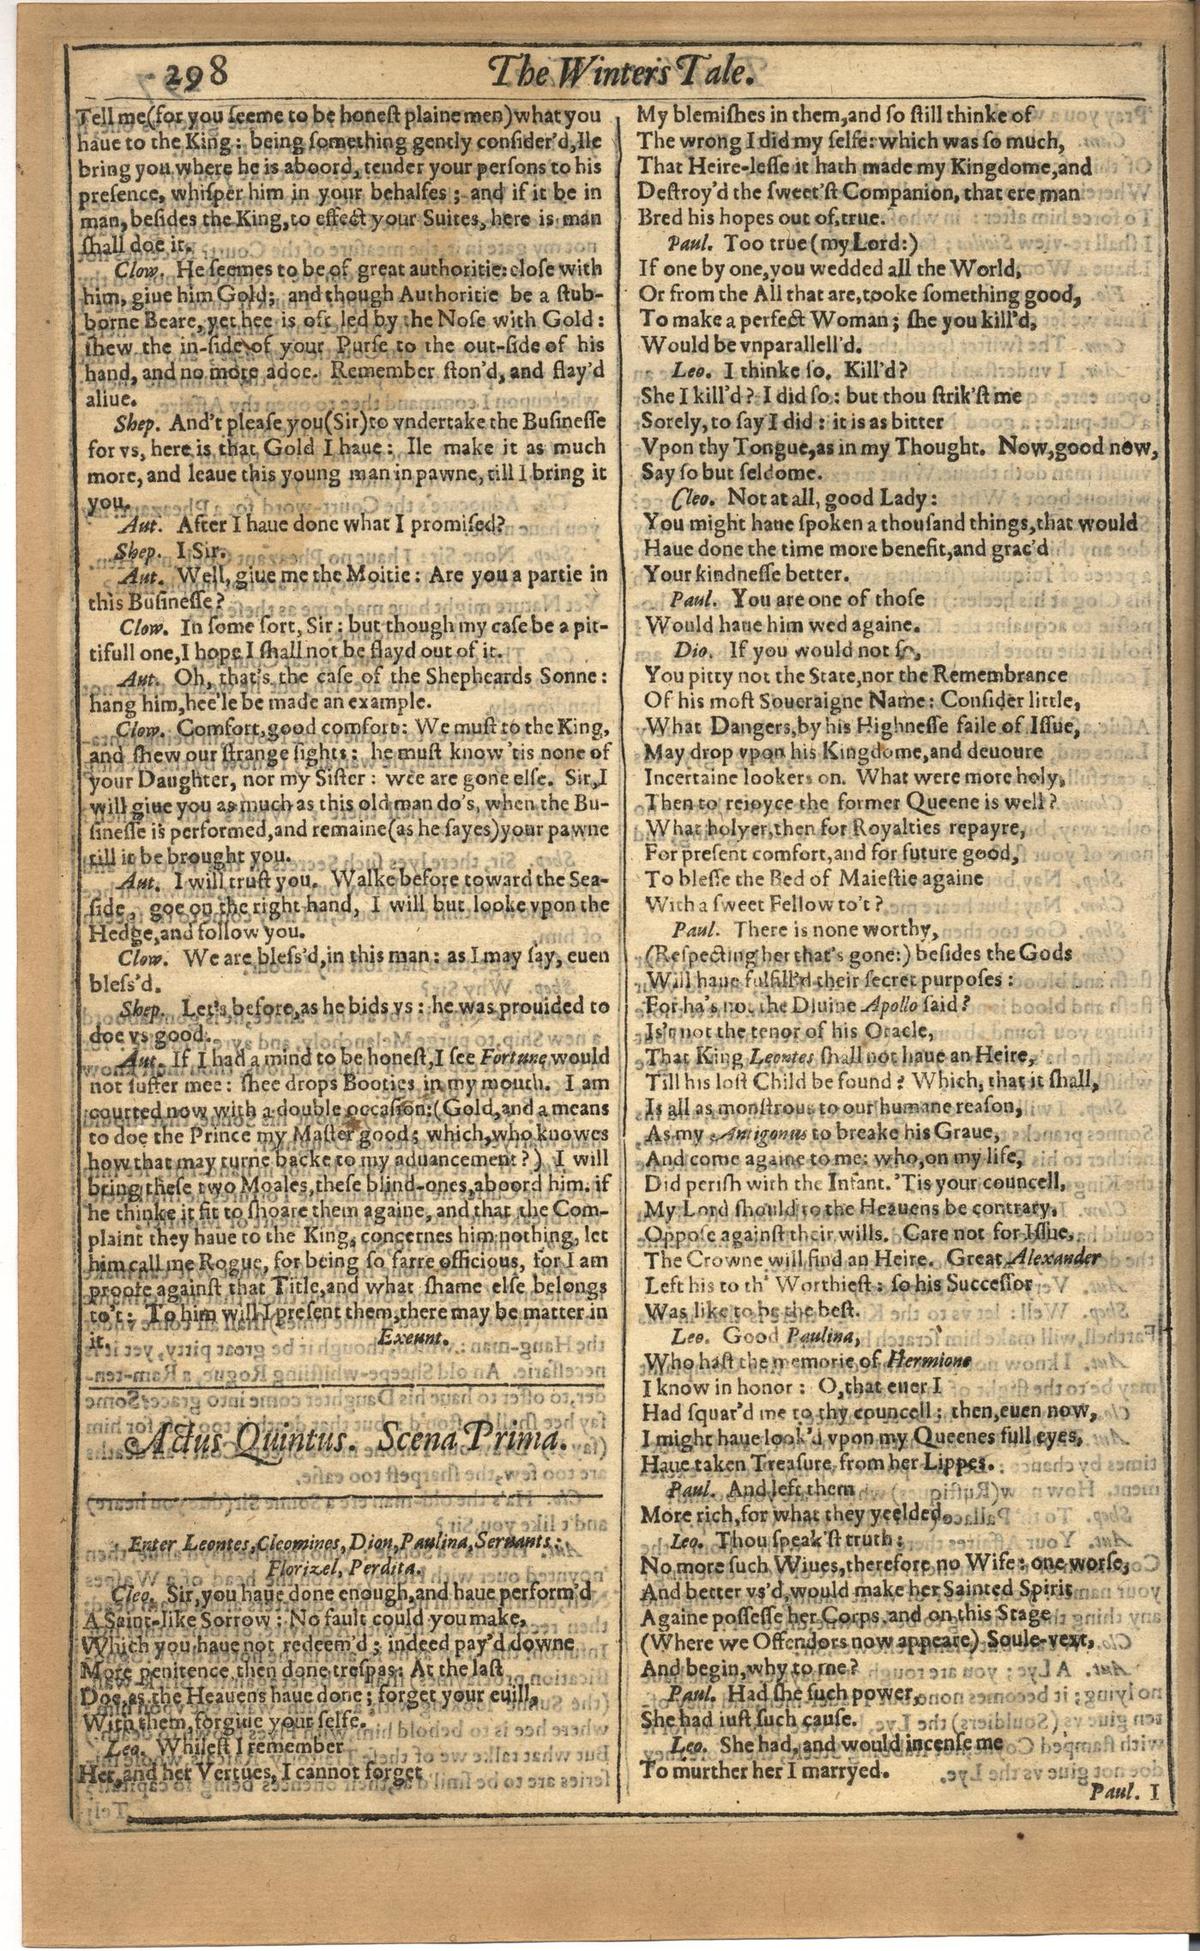 298
The Winters Tale.
Tell me (for you seeme to be honest plaine men) what you
haue to the King: being something gently consider'd, Ile
bring you where he is aboord, tender your persons to his
presence, whisper him in your behalfes; and if it be in
man, besides the King, to effect your Suites, here is man
shall doe it.
Clow. He seemes to be of great authoritie: close with
him, giue him Gold; and though Authoritie be a stub-
borne Beare, yet hee is oft led by the Nose with Gold:
shew the in-side of your Purse to the out-side of his
hand, and no more adoe. Remember ston'd, and flay'd
aliue.
Shep. And't please you (Sir) to vndertake the Businesse
for vs, here is that Gold I haue: Ile make it as much
more, and leaue this young man in pawne, till I bring it
you.
Aut. After I haue done what I promised?
Shep. I Sir.
Aut. Well, giue me the Moitie: Are you a partie in
this Businesse?
Clow. In some sort, Sir: but though my case be a pit-
tifull one, I hope I shall not be flayd out of it.
Aut. Oh, that's the case of the Shepheards Sonne:
hang him, hee'le be made an example.
Clow. Comfort, good comfort: We must to the King,
and shew our strange sights: he must know 'tis none of
your Daughter, nor my Sister: wee are gone else. Sir, I
will giue you as much as this old man do's, when the Bu-
sinesse is performed, and remaine (as he sayes) your pawne
till it be brought you.
Aut. I will trust you. Walke before toward the Sea-
side, goe on the right hand, I will but looke vpon the
Hedge, and follow you.
Clow. We are bless'd, in this man: as I may say, euen
bless'd.
Shep. Let's before, as he bids vs: he was prouided to
doe vs good.
Aut. If I had a mind to be honest, I see Fortune would
not suffer mee: shee drops Booties in my mouth. I am
courted now with a double occasion: (Gold, and a means
to doe the Prince my Master good; which, who knowes
how that may turne backe to my aduancement?) I will
bring these two Moales, these blind-ones, aboord him: if
he thinke it fit to shoare them againe, and that the Com-
plaint they haue to the King, concernes him nothing, let
him call me Rogue, for being so farre officious, for I am
proofe against that Title, and what shame else belongs
to't: To him will I present them, there may be matter in
it. Exeunt.
Actus Quintus. Scena Prima.
Enter Leontes, Cleomines, Dion, Paulina, Seruants:
Florizel, Perdita.
Cleo. Sir, you haue done enough, and haue perform'd
A Saint-like Sorrow: No fault could you make,
Which you haue not redeem'd; indeed pay'd downe
More penitence, then done trespas: At the last
Doe, as the Heauens haue done; forget your euill,
With them, forgiue your selfe.
Leo. Whilest I remember
Her, and her Vertues, I cannot forget
My blemishes in them, and so still thinke of
The wrong I did my selfe: which was so much,
That Heire-lesse it hath made my Kingdome, and
Destroy'd the sweet'st Companion, that ere man
Bred his hopes out of, true.
Paul. Too true (my Lord:)
If one by one, you wedded all the World,
Or from the All that are, tooke something good,
To make a perfect Woman; she you kill'd,
Would be vnparallell'd.
Leo. I thinke so. Kill'd?
She I kill'd? I did so: but thou strik'st me
Sorely, to say I did: it is as bitter
Vpon thy Tongue, as in my Thought. Now, good now,
Say so but seldome.
Cleo. Not at all, good Lady:
You might haue spoken a thousand things, that would
Haue done the time more benefit, and grac'd
Your kindnesse better.
Paul. You are one of those
Would haue him wed againe.
Dio. If you would not so,
You pitty not the State, nor the Remembrance
Of his most Soueraigne Name: Consider little,
What Dangers, by his Highnesse faile of Issue,
May drop vpon his Kingdome, and deuoure
Incertaine lookers on. What were more holy,
Then to reioyce the former Queene is well?
What holyer, then for Royalties repayre,
For present comfort, and for future good,
To blesse the Bed of Maiestie againe
With a sweet Fellow to't?
Paul. There is none worthy,
(Respecting her that's gone:) besides the Gods
Will haue fulfill'd their secret purposes:
For ha's not the Diuine Apollo said?
Is't not the tenor of his Oracle,
That King Leontes shall not haue an Heire,
Till his lost Child be found? Which, that it shall,
Is all as monstrous to our humane reason,
As my Antigonus to breake his Graue,
And come againe to me: who, on my life,
Did perish with the Infant. 'Tis your councell,
My Lord should to the Heauens be contrary,
Oppose against their wills. Care not for Issue,
The Crowne will find an Heire. Great Alexander
Left his to th' Worthiest: so his Successor
Was like to be the best.
Leo. Good Paulina,
Who hast the memorie of Hermione
I know in honor: O, that euer I
Had squar'd me to thy councell: then, euen now,
I might haue look'd vpon my Queenes full eyes,
Haue taken Treasure from her Lippes.
Paul. And left them
More rich, for what they yeelded.
Leo. Thou speak'st truth:
No more such Wiues, therefore no Wife: one worse,
And better vs'd, would make her Sainted Spirit
Againe possesse her Corps, and on this Stage
(Where we Offendors now appeare) Soule-vext,
And begin, why to me?
Paul. Had she such power,
She had iust such cause.
Leo. She had, and would incense me
To murther her I marryed.
Paul. I